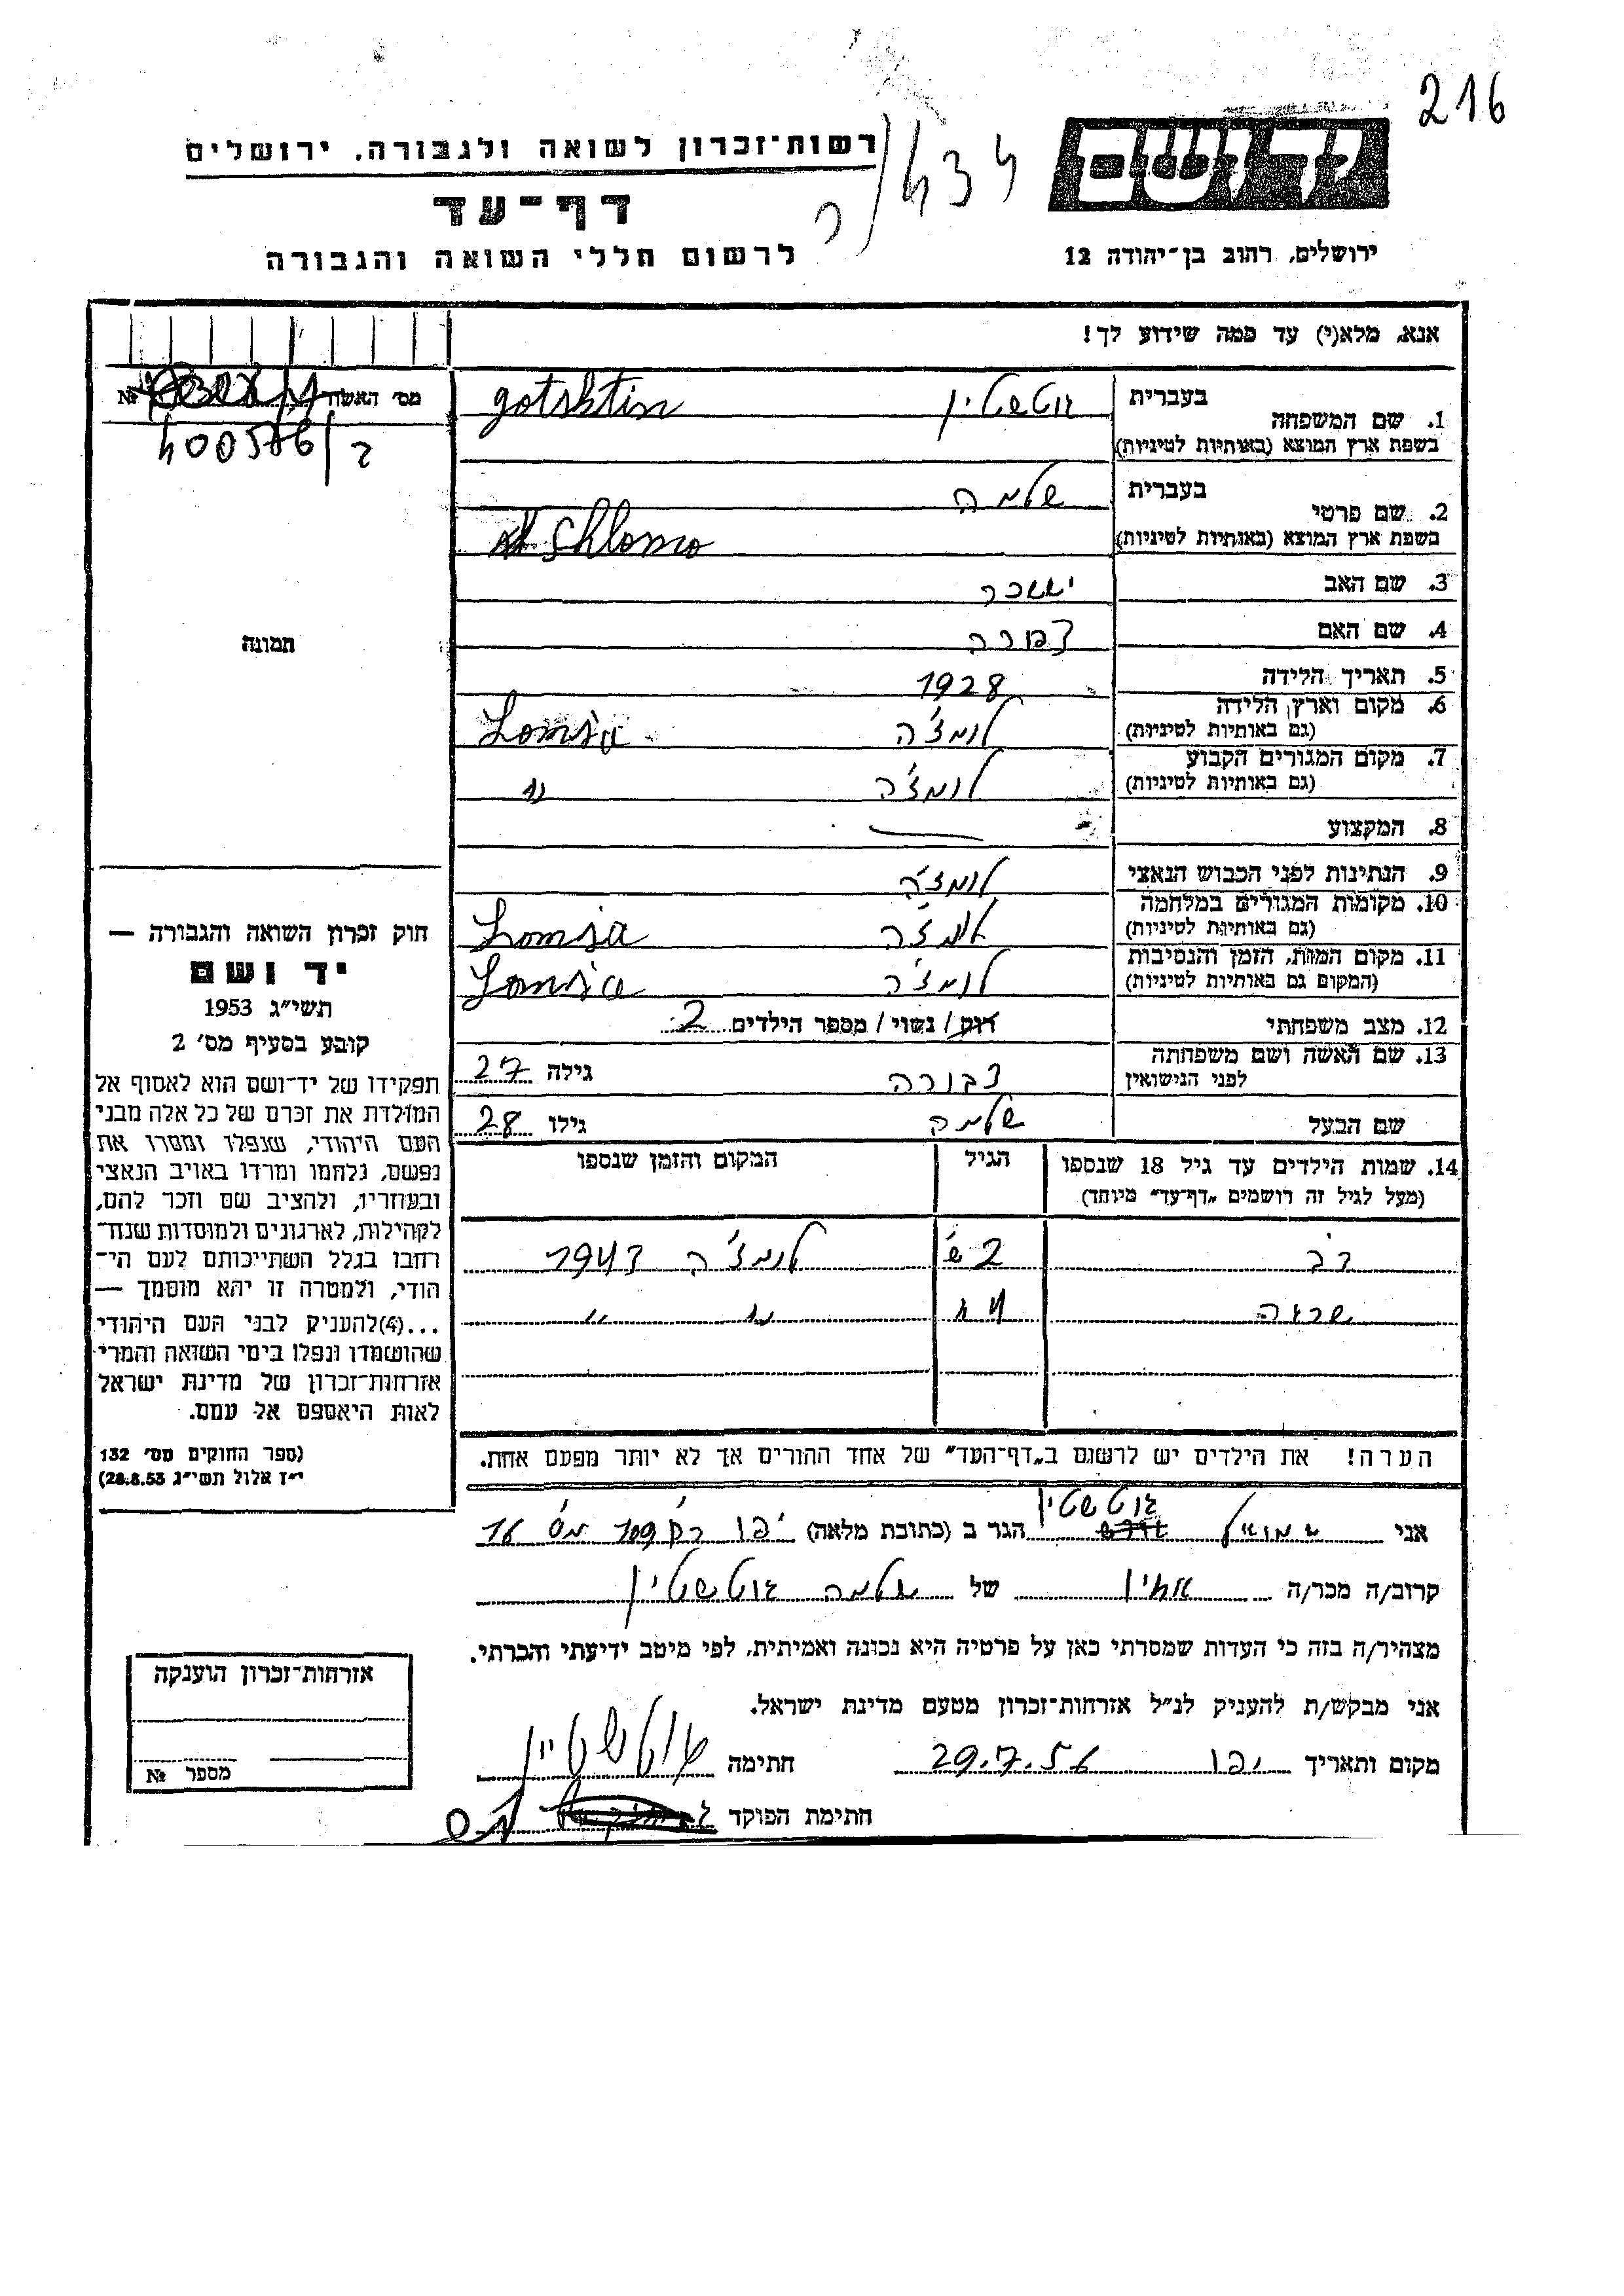 216
רשות־זכרון לשואה ולגבורה, ירושלים
יד ושם
דף־עד
לרשום חללי השואה והגבורה
ירושלים, רחוב בן־יהודה 12
אנא, מלא(י) עד כמה שידוע לך!
מס׳ האשה №
400576/2
תמונה
1. שם המשפחה בעברית גוטשטין gotshtin
בשפת ארץ המוצא (באותיות לטיניות)
2. שם פרטי בעברית שלמה
בשפת ארץ המוצא (באותיות לטיניות) Shlomo
3. שם האב יששכר
4. שם האם צפורה
5. תאריך הלידה 1928
6. מקום וארץ הלידה לומצ׳ה Lomsia
(גם באותיות לטיניות)
7. מקום המגורים הקבוע לומצ׳ה "
(גם באותיות לטיניות)
8. המקצוע —
9. הנתינות לפני הכבוש הנאצי לומצ׳ה
10. מקומות המגורים במלחמה לומצ׳ה Lomsia
(גם באותיות לטיניות)
11. מקום המות, הזמן והנסיבות לומצ׳ה Lomsia
(המקום גם באותיות לטיניות)
12. מצב משפחתי רווק / נשוי / מספר הילדים 2
13. שם האשה ושם משפחתה לפני הנישואין דבורה גילה 27
שם הבעל שלמה גילו 28
14. שמות הילדים עד גיל 18 שנספו הגיל המקום והזמן שנספו
(מעל לגיל זה רושמים „דף־עד" מיוחד)
דב 2 ש׳ לומצ׳ה 1943
שרה " "
הערה! את הילדים יש לרשום ב„דף־העד" של אחד ההורים אך לא יותר מפעם אחת.
חוק זכרון השואה והגבורה —
יד ושם
תשי״ג 1953
קובע בסעיף מס׳ 2
תפקידו של יד־ושם הוא לאסוף אל
המולדת את זכרם של כל אלה מבני
העם היהודי, שנפלו ומסרו את
נפשם, נלחמו ומרדו באויב הנאצי
ובעוזריו, ולהציב שם וזכר להם,
לקהילות, לארגונים ולמוסדות שנח־
רבו בגלל השתייכותם לעם הי־
הודי, ולמטרה זו יהא מוסמך —
...(4) להעניק לבני העם היהודי
שהושמדו ונפלו בימי השואה והמרי
אזרחות־זכרון של מדינת ישראל
לאות היאספם אל עמם.
(ספר החוקים מס׳ 132
י״ז אלול תשי״ג 28.8.53)
אני שמואל גוטשטין הגר ב (כתובת מלאה) יפו רח׳ 109 מס׳ 16
קרוב/ה מכר/ה אחין של שלמה גוטשטין
מצהיר/ה בזה כי העדות שמסרתי כאן על פרטיה היא נכונה ואמיתית, לפי מיטב ידיעתי והכרתי.
אני מבקש/ת להעניק לנ״ל אזרחות־זכרון מטעם מדינת ישראל.
מקום ותאריך יפו 29.7.56 חתימה גוטשטיין
חתימת הפוקד
אזרחות־זכרון הוענקה
מספר №